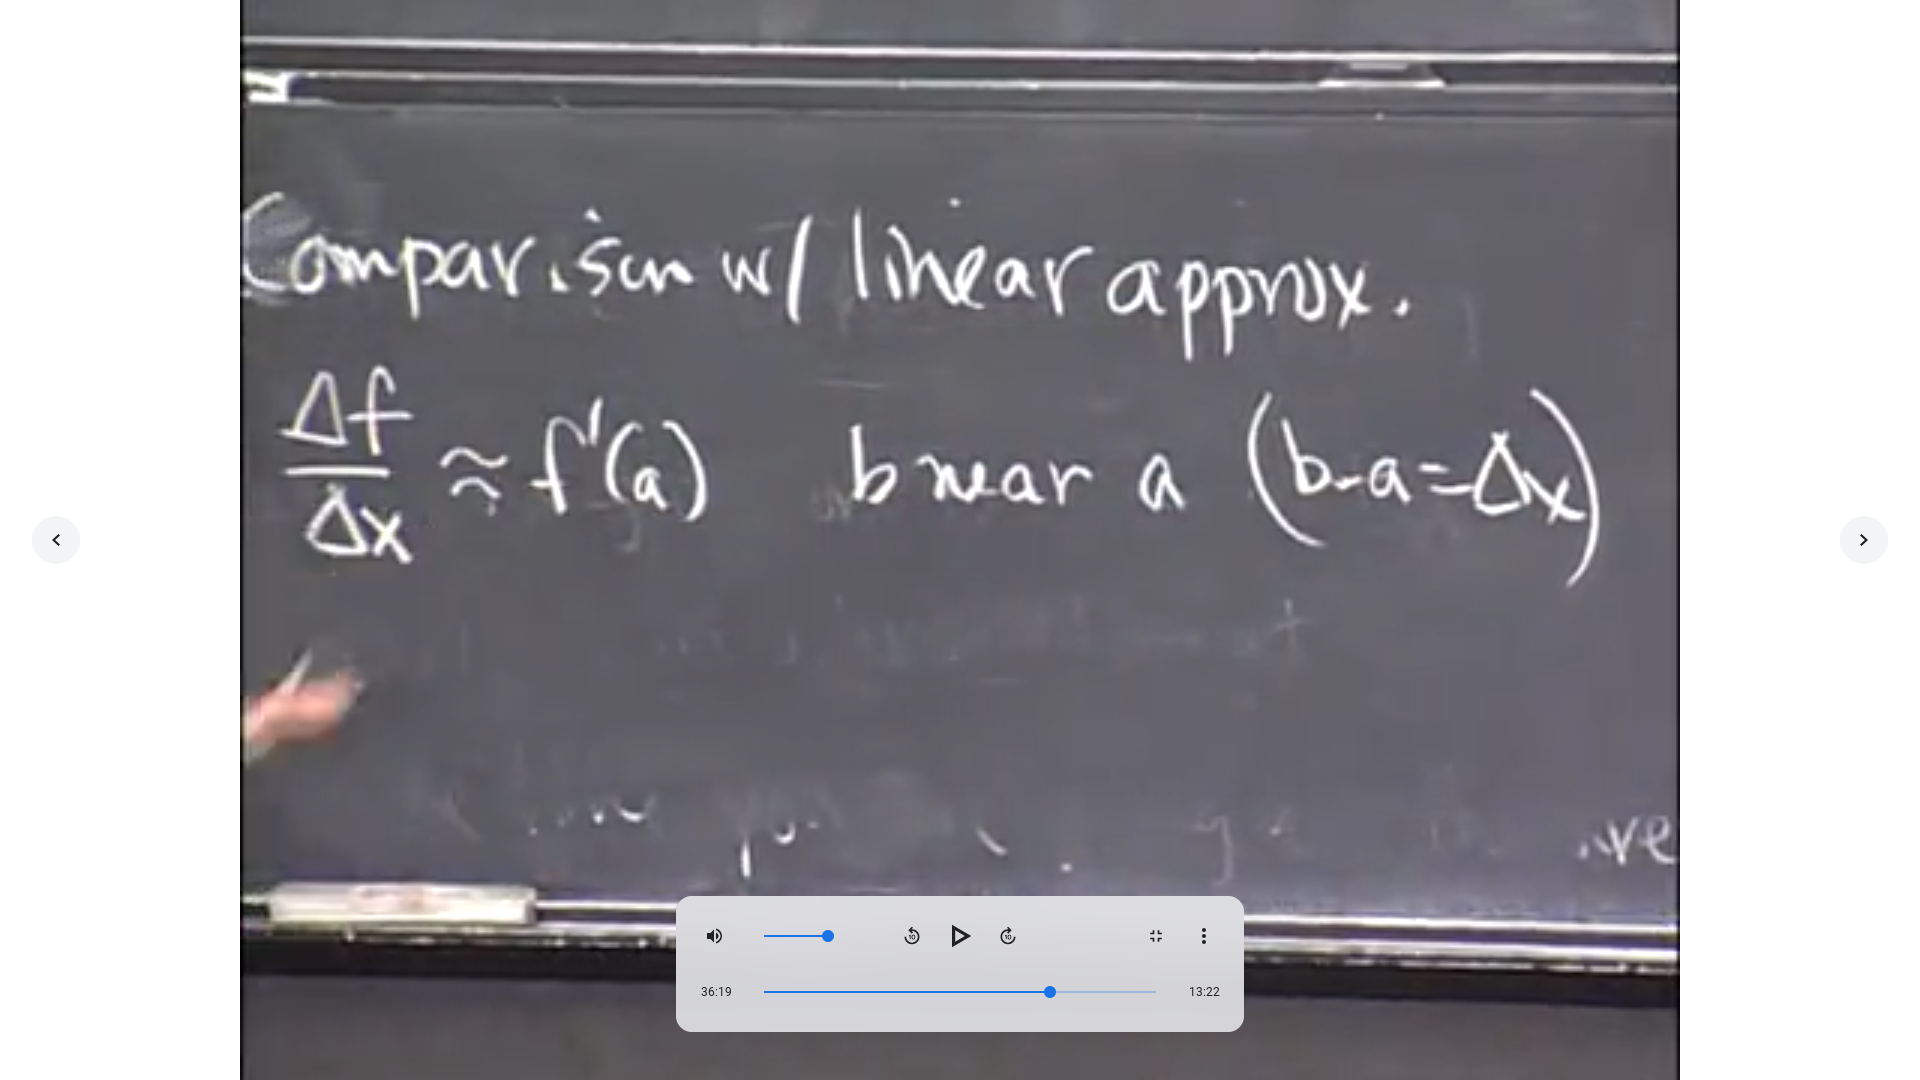 Comparison w/ linear approx.
Δf/Δx ≈ f'(a) b near a (b-a=Δx)
ve
10 10
36:19 13:22